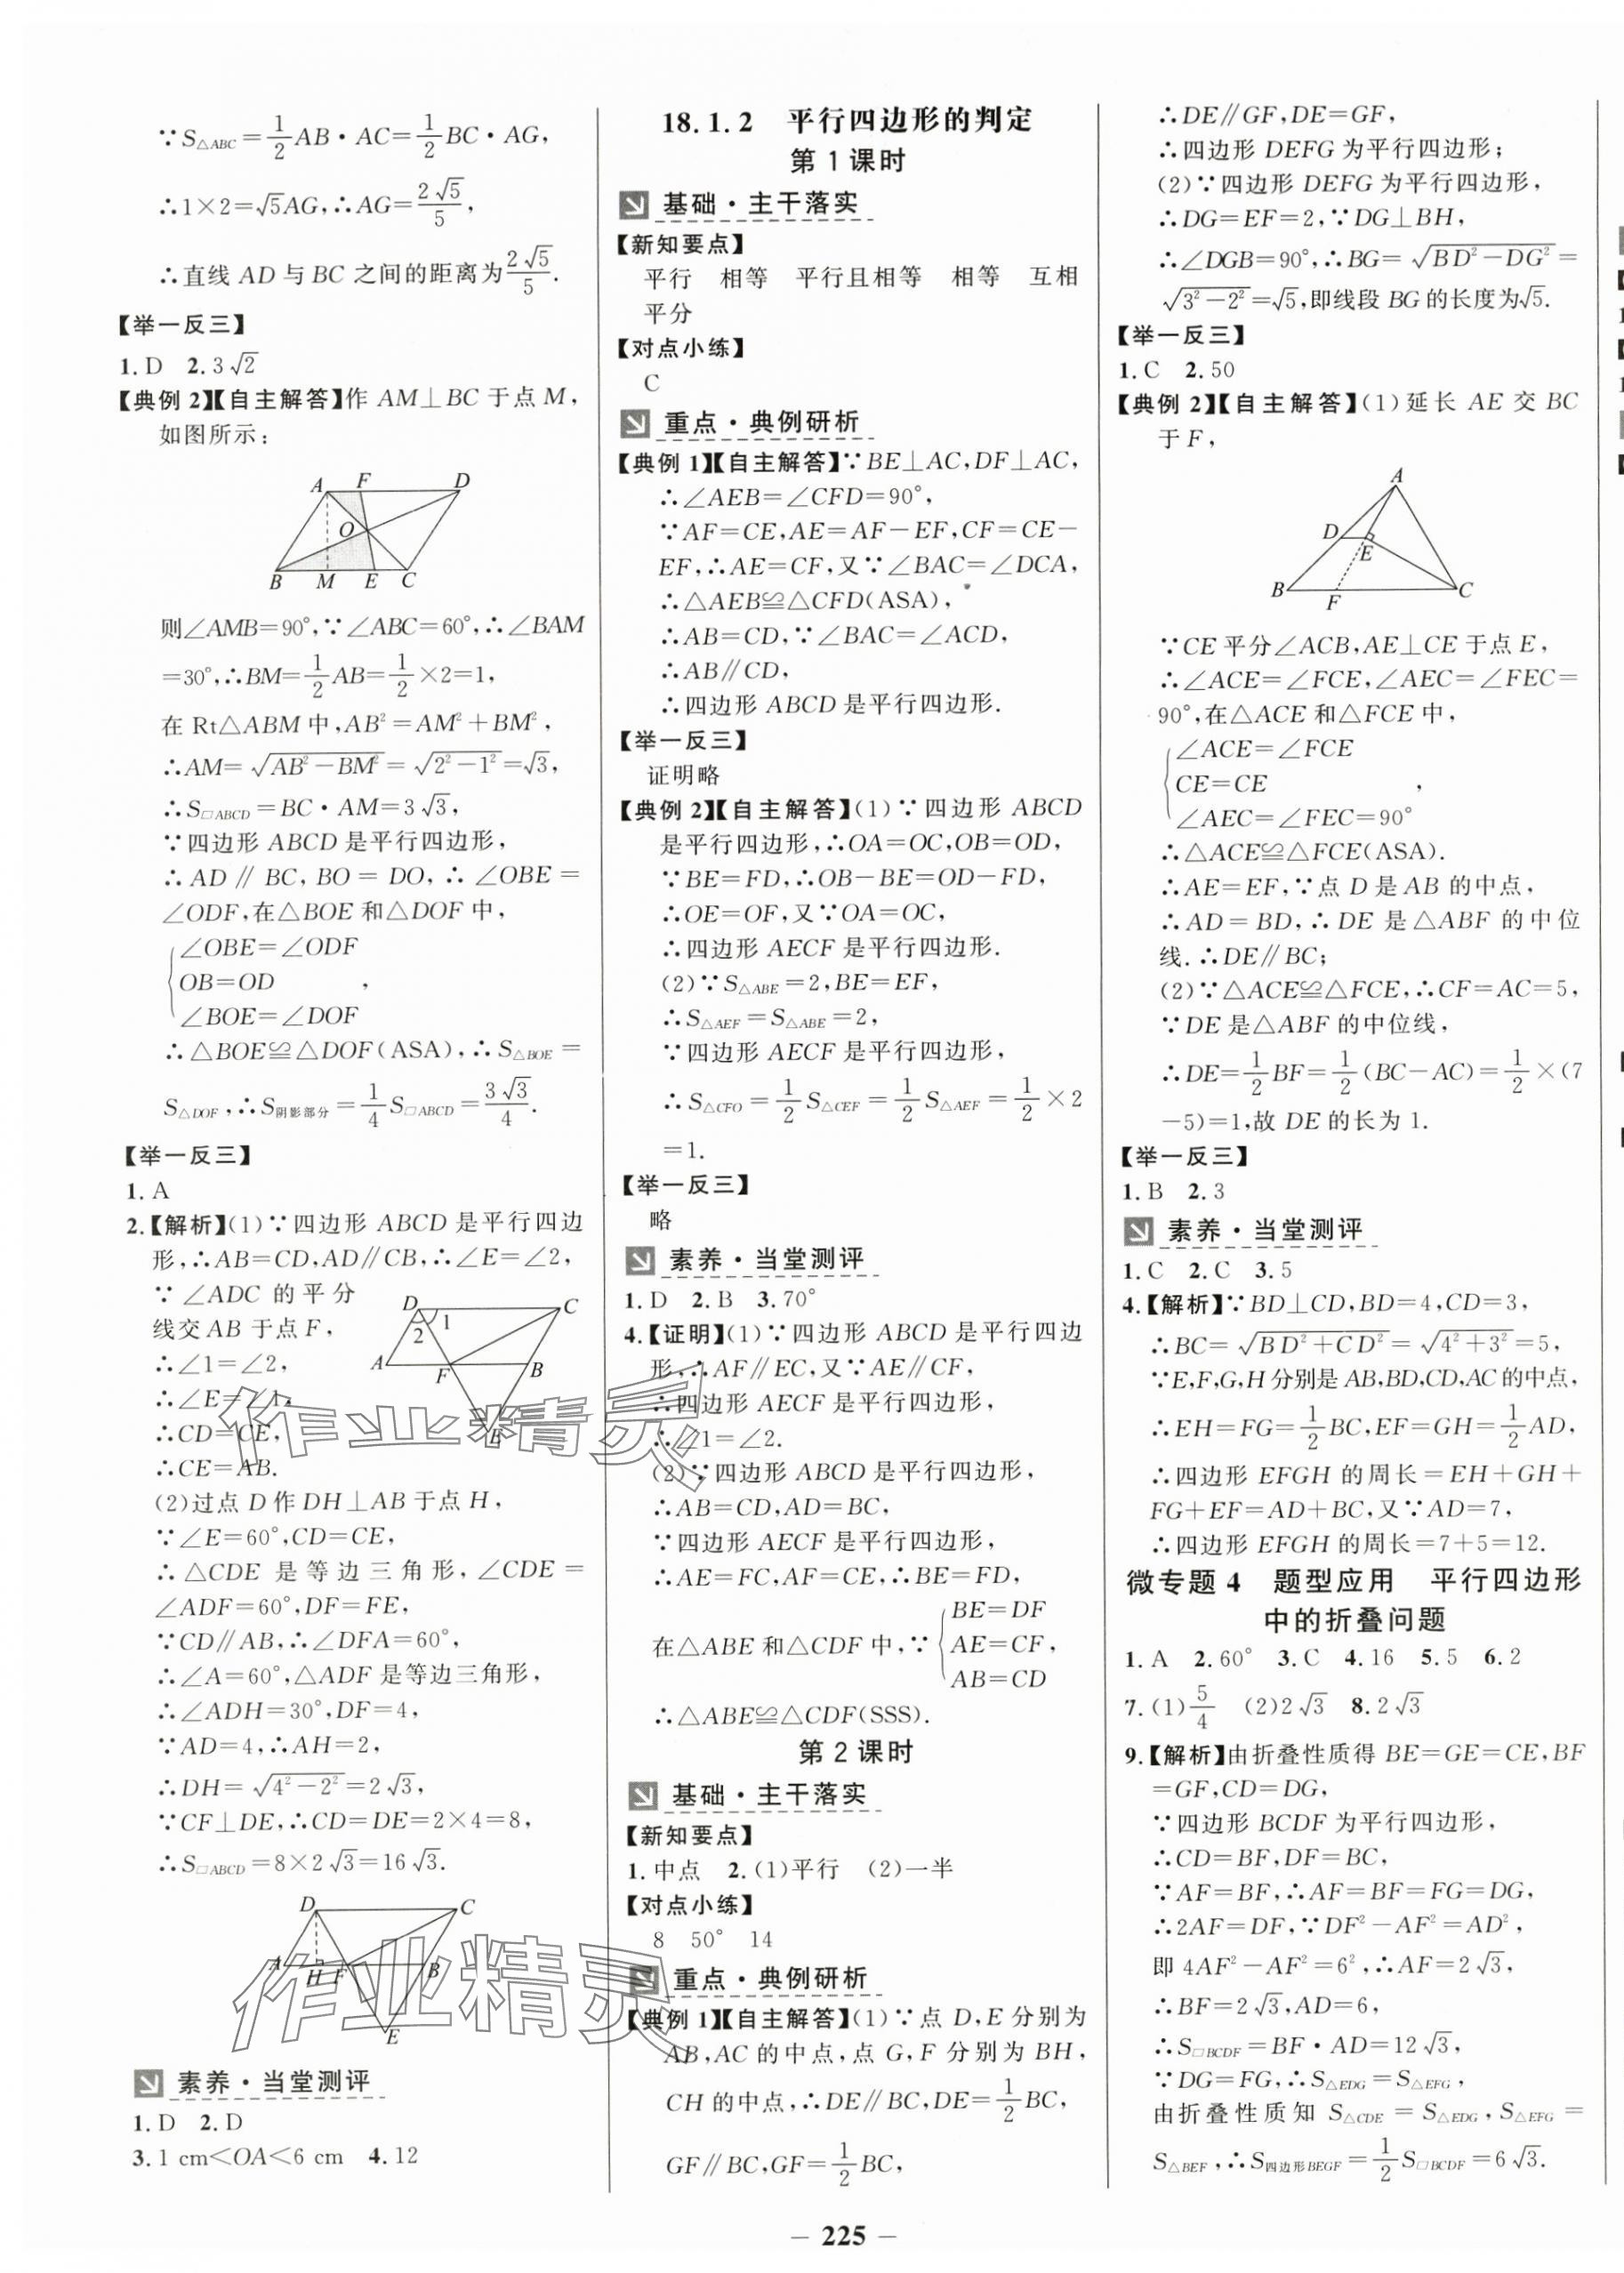 ∵S△ABC=1/2AB·AC=1/2BC·AG,
∴1×2=√5AG,∴AG=2√5/5,
∴直线 AD 与 BC 之间的距离为2√5/5.
【举一反三】
1.D 2.3√2
【典例2】【自主解答】作 AM⊥BC 于点 M,
如图所示:
A F D
O
B M E C
则∠AMB=90°,∵∠ABC=60°,∴∠BAM
=30°,∴BM=1/2AB=1/2×2=1,
在 Rt△ABM 中,AB²=AM²+BM²,
∴AM=√(AB²-BM²)=√(2²-1²)=√3,
∴S□ABCD=BC·AM=3√3,
∵四边形 ABCD 是平行四边形,
∴AD∥BC,BO=DO,∴∠OBE=
∠ODF,在△BOE 和△DOF 中,
∠OBE=∠ODF
OB=OD ,
∠BOE=∠DOF
∴△BOE≌△DOF(ASA),∴S△BOE=
S△DOF,∴S阴影部分=1/4S□ABCD=3√3/4.
【举一反三】
1.A
2.【解析】(1)∵四边形 ABCD 是平行四边
形,∴AB=CD,AD∥CB,∴∠E=∠2,
∵∠ADC 的平分
线交 AB 于点 F,
∴∠1=∠2,
∴∠E=∠1,
∴CD=CE,
∴CE=AB.
D C
1
2
A F B
E
(2)过点 D 作 DH⊥AB 于点 H,
∵∠E=60°,CD=CE,
∴△CDE 是等边三角形,∠CDE=
∠ADF=60°,DF=FE,
∵CD∥AB,∴∠DFA=60°,
∴∠A=60°,△ADF 是等边三角形,
∴∠ADH=30°,DF=4,
∵AD=4,∴AH=2,
∴DH=√(4²-2²)=2√3,
∵CF⊥DE,∴CD=DE=2×4=8,
∴S□ABCD=8×2√3=16√3.
D C
A H F B
E
素养·当堂测评
1.D 2.D
3.1 cm<OA<6 cm 4.12
18.1.2 平行四边形的判定
第1课时
基础·主干落实
【新知要点】
平行 相等 平行且相等 相等 互相
平分
【对点小练】
C
重点·典例研析
【典例1】【自主解答】∵BE⊥AC,DF⊥AC,
∴∠AEB=∠CFD=90°,
∵AF=CE,AE=AF-EF,CF=CE-
EF,∴AE=CF,又∵∠BAC=∠DCA,
∴△AEB≌△CFD(ASA),
∴AB=CD,∵∠BAC=∠ACD,
∴AB∥CD,
∴四边形 ABCD 是平行四边形.
【举一反三】
证明略
【典例2】【自主解答】(1)∵四边形 ABCD
是平行四边形,∴OA=OC,OB=OD,
∵BE=FD,∴OB-BE=OD-FD,
∴OE=OF,又∵OA=OC,
∴四边形 AECF 是平行四边形.
(2)∵S△ABE=2,BE=EF,
∴S△AEF=S△ABE=2,
∵四边形 AECF 是平行四边形,
∴S△CFO=1/2S△CEF=1/2S△AEF=1/2×2
=1.
【举一反三】
略
素养·当堂测评
1.D 2.B 3.70°
4.【证明】(1)∵四边形 ABCD 是平行四边
形,∴AF∥EC,又∵AE∥CF,
∴四边形 AECF 是平行四边形,
∴∠1=∠2.
(2)∵四边形 ABCD 是平行四边形,
∴AB=CD,AD=BC,
∵四边形 AECF 是平行四边形,
∴AE=FC,AF=CE,∴BE=FD,
BE=DF
在△ABE 和△CDF 中,∵ AE=CF,
AB=CD
∴△ABE≌△CDF(SSS).
第2课时
基础·主干落实
【新知要点】
1.中点 2.(1)平行 (2)一半
【对点小练】
8 50° 14
重点·典例研析
【典例1】【自主解答】(1)∵点 D,E 分别为
AB,AC 的中点,点 G,F 分别为 BH,
CH 的中点,∴DE∥BC,DE=1/2BC,
GF∥BC,GF=1/2BC,
∴DE∥GF,DE=GF,
∴四边形 DEFG 为平行四边形;
(2)∵四边形 DEFG 为平行四边形,
∴DG=EF=2,∵DG⊥BH,
∴∠DGB=90°,∴BG=√(BD²-DG²)=
√(3²-2²)=√5,即线段 BG 的长度为√5.
【举一反三】
1.C 2.50
【典例2】【自主解答】(1)延长 AE 交 BC
于 F,
A
D
E
B F C
∵CE 平分∠ACB,AE⊥CE 于点 E,
∴∠ACE=∠FCE,∠AEC=∠FEC=
90°,在△ACE 和△FCE 中,
∠ACE=∠FCE
CE=CE ,
∠AEC=∠FEC=90°
∴△ACE≌△FCE(ASA).
∴AE=EF,∵点 D 是 AB 的中点,
∴AD=BD,∴DE 是△ABF 的中位
线.∴DE∥BC;
(2)∵△ACE≌△FCE,∴CF=AC=5,
∵DE 是△ABF 的中位线,
∴DE=1/2BF=1/2(BC-AC)=1/2×(7
-5)=1,故 DE 的长为 1.
【举一反三】
1.B 2.3
素养·当堂测评
1.C 2.C 3.5
4.【解析】∵BD⊥CD,BD=4,CD=3,
∴BC=√(BD²+CD²)=√(4²+3²)=5,
∵E,F,G,H 分别是 AB,BD,CD,AC 的中点,
∴EH=FG=1/2BC,EF=GH=1/2AD,
∴四边形 EFGH 的周长=EH+GH+
FG+EF=AD+BC,又∵AD=7,
∴四边形 EFGH 的周长=7+5=12.
微专题4 题型应用 平行四边形
中的折叠问题
1.A 2.60° 3.C 4.16 5.5 6.2
7.(1)5/4 (2)2√3 8.2√3
9.【解析】由折叠性质得 BE=GE=CE,BF
=GF,CD=DG,
∵四边形 BCDF 为平行四边形,
∴CD=BF,DF=BC,
∵AF=BF,∴AF=BF=FG=DG,
∴2AF=DF,∵DF²-AF²=AD²,
即 4AF²-AF²=6²,∴AF=2√3,
∴BF=2√3,AD=6,
∴S□BCDF=BF·AD=12√3,
∵DG=FG,∴S△EDG=S△EFG,
由折叠性质知 S△CDE=S△EDG,S△EFG=
S△BEF,∴S四边形BEGF=1/2S□BCDF=6√3.
— 225 —
作业精灵
作业精灵